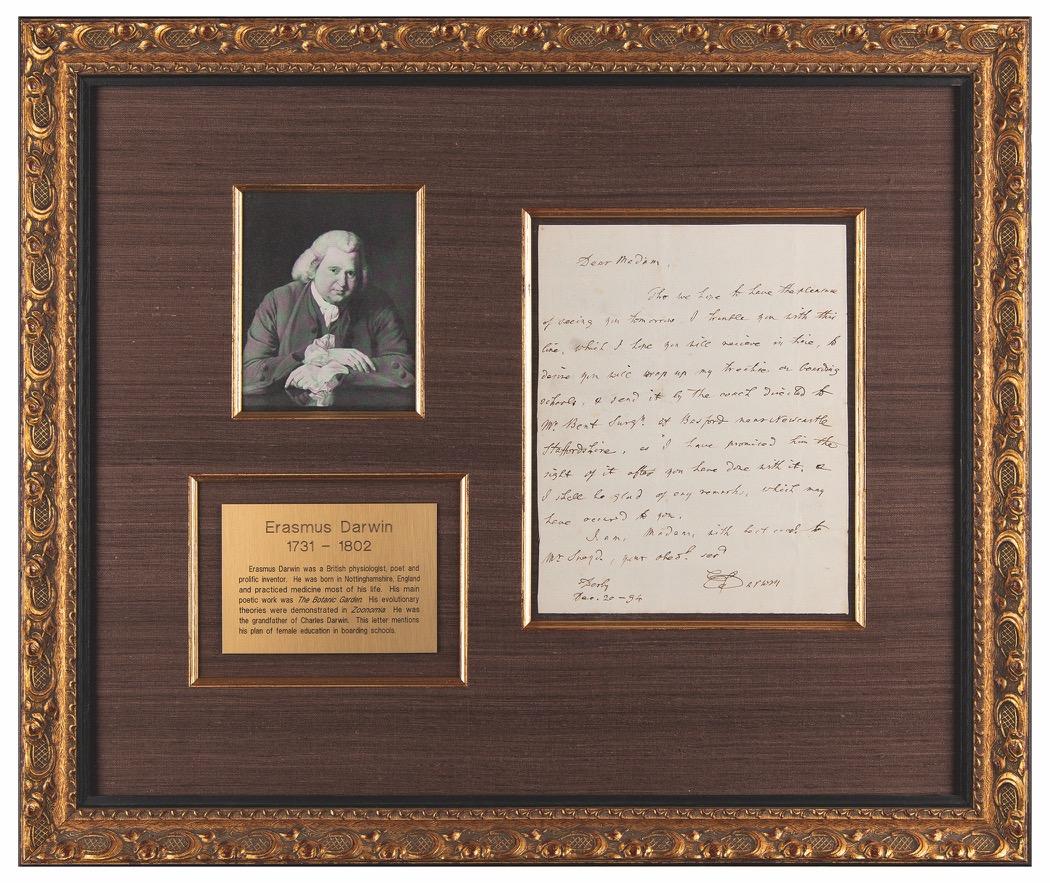 Erasmus Darwin
1731 – 1802
Erasmus Darwin was a British physiologist, poet and
prolific inventor. He was born in Nottinghamshire, England
and practiced medicine most of his life. His main
poetic work was The Botanic Garden. His evolutionary
theories were demonstrated in Zoonomia. He was
the grandfather of Charles Darwin. This letter mentions
his plan of female education in boarding schools.
Dear Madam,
Tho we hope to have the pleasure
of seeing you tomorrow, I trouble you with this
line, which I hope you will recieve in time, to
desire you will wrap up my treatise on boarding
schools, & send it by the coach directed to
Mr. Bent Surgn. at Basford near Newcastle
Staffordshire, as I have promised him the
sight of it after you have done with it, &
I shall be glad of any remarks, which may
have occured to you.
I am, Madam, with best to
Mr , your obedt servt
E Darwin
Derby
Dec. 20 – 94